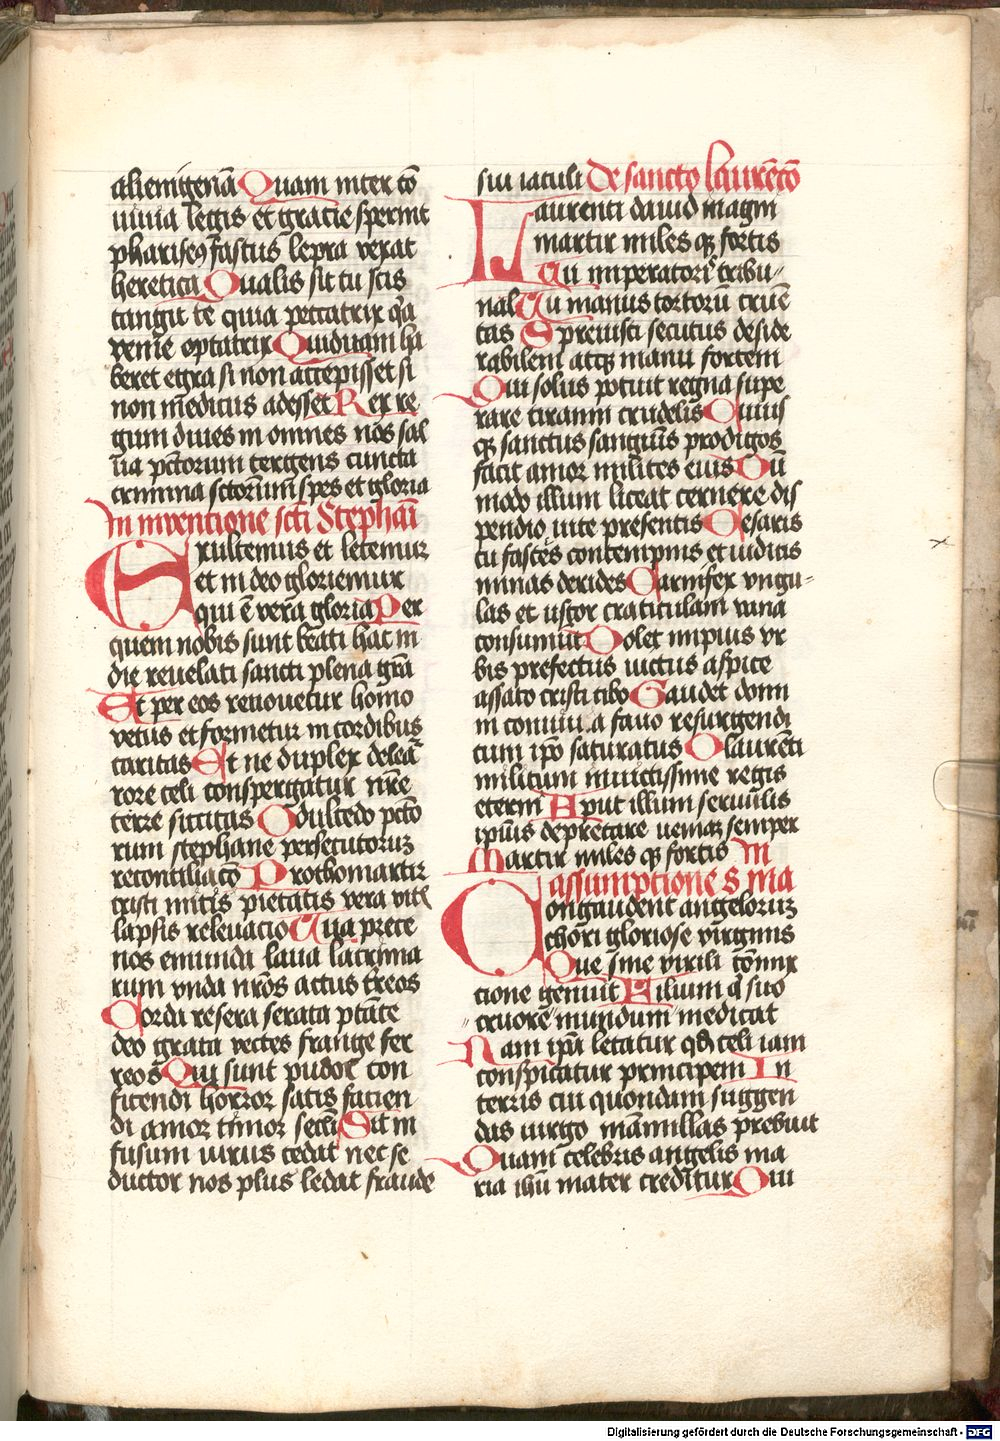 alienigenā Quam inter cō
viuia legis et gratie spernit
phariseꝰ fastus lepra vexat
heretica Qualis sit tu scis
tangit te quia peccatrix q̄a
venie optatrix Quidnam ha
beret egra si non accepisset si
non medicus adesset Rex re
gum diues in omnes nos sal
ua pctorum tergens cuncta
crimina sctorum spes et gloria
In inventione scti Stephani
Exultemus et letemur
et in deo gloriemur
qui ē vera gloria Per
quem nobis sunt beati hac in
die reuelati sancti plena grā
Et per eos renouetur homo
vetus et formetur in cordibus
caritas Et ne duplex deleā
rore celi conspergatur nr̄e
terre siccitas O dulcedo pctō
rum stephane persecutorum
reconciliacō Prothomartir
cristi mitis pietatis vera vitis
lapsis releuacio Tua prece
nos emunda laua lacrima
rum vnda nr̄os actus ereos
Corda resera serata ptāte
deo grata vectes frange fer
reos Qui sunt pudor con
fitendi horror satis facien
di amor timor secli Sit in
fusum virus cedat nec se
ductor nos plus ledat fraude
sui iaculi De sancto laurēcō
Laurenti dauid magni
martir miles qꝫ fortis
Tu imperatoriꝰ tribu⸗
nal Tu manus tortorū cruē
tas Spreuisti secutus deside
rabilem atqꝫ manu fortem
Qui solus potuit regna supe
rare tiranni crudelis Cuius
qꝫ sanctus sanguīs prodigos
facit amor milites eius Dū
modo illum liceat cernere dis
pendio vite presentis Cesaris
tu fasces contempnis et iudicis
minas derides Carnifex vngu⸗
las et ustor craticulam vana
consumit Dolet impius vr
bis prefectus victus a pisce
assato cristi cibo Gaudet domi
ni conuiua fauo resurgendi
cum ipō saturatus O laurēti
militum inuictissime regis
eterni Aput illum seruulis
ipīus deprecare veniaꝫ semper
Martir miles qꝫ fortis In
assumptione S Ma
Congaudent angeloruꝫ
chori gloriose virginis
Que sīne virili cōmix
cione genuit Filium q̄ suo
cruorē mundum medicat
Nam ip̄a letatur qd celi iam
conspicatur principem In
terris cui quondam suggen
das virgo mamillas prebuit
Quam celebris angelis ma
ria ihū mater creditur Qui
Digitalisierung gefördert durch die Deutsche Forschungsgemeinschaft - DFG